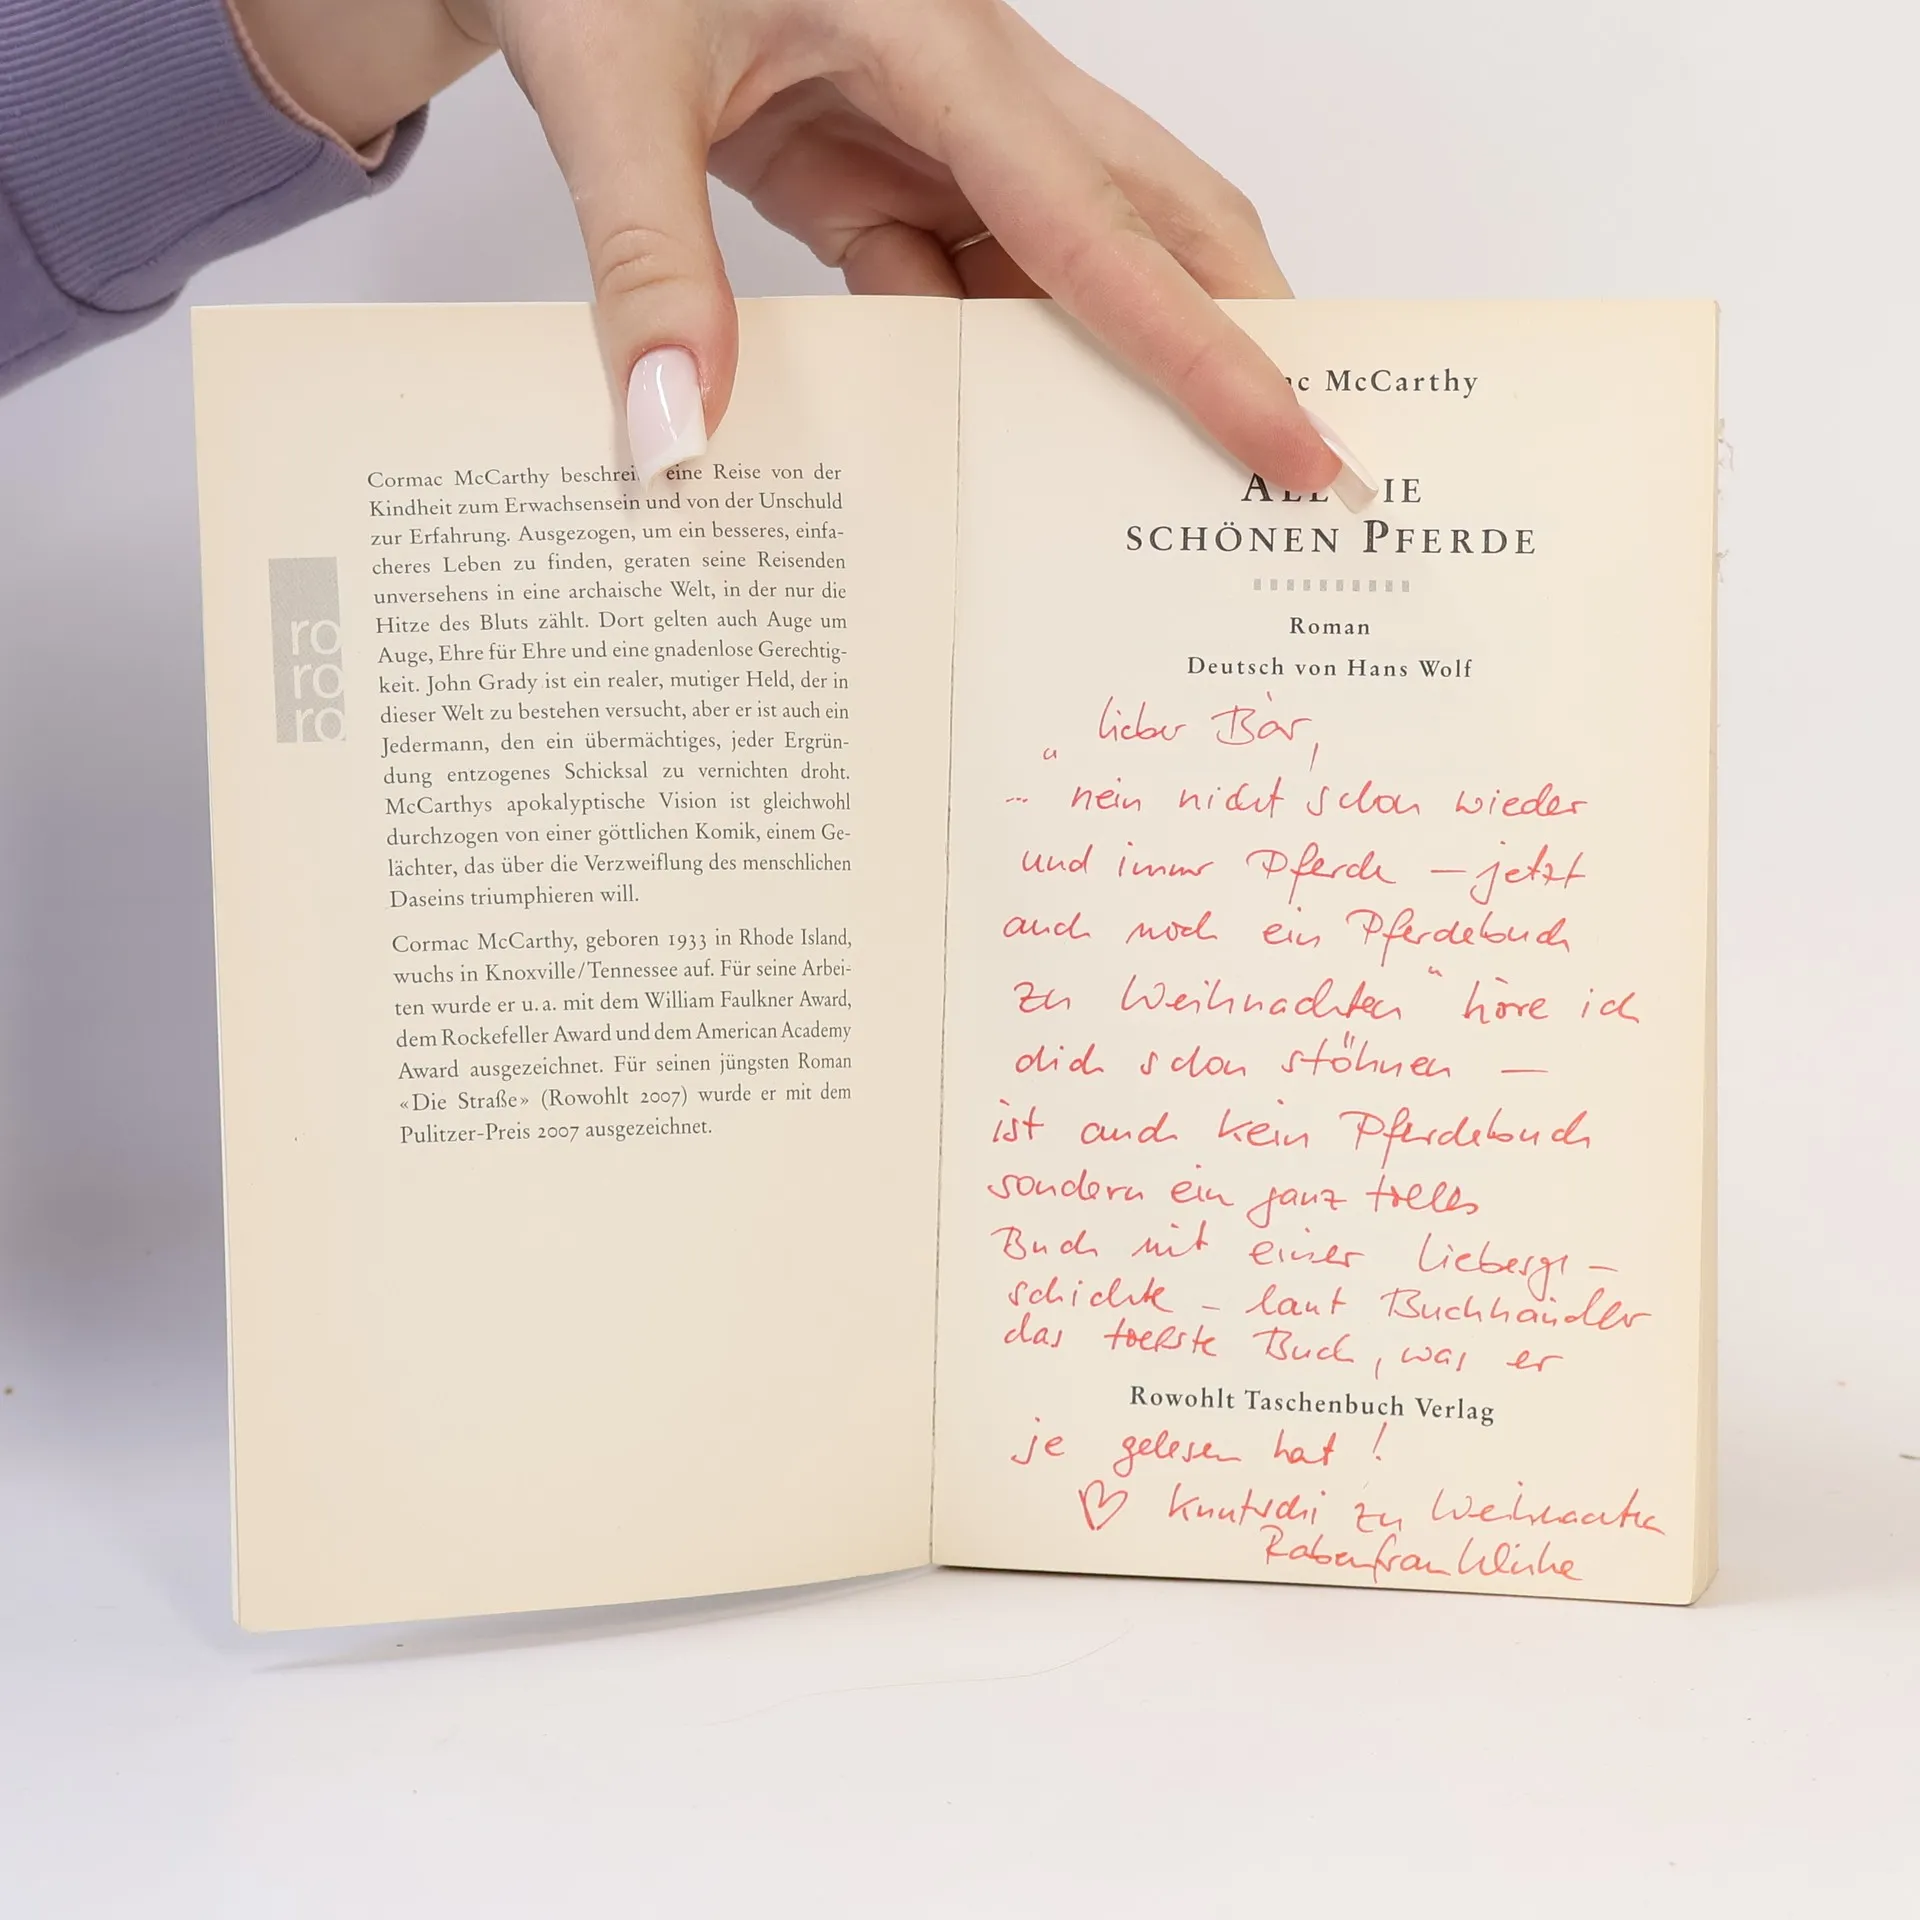 Cormac McCarthy beschrei eine Reise von der
Kindheit zum Erwachsensein und von der Unschuld
zur Erfahrung. Ausgezogen, um ein besseres, einfa-
cheres Leben zu finden, geraten seine Reisenden
unversehens in eine archaische Welt, in der nur die
Hitze des Bluts zählt. Dort gelten auch Auge um
Auge, Ehre für Ehre und eine gnadenlose Gerechtig-
keit. John Grady ist ein realer, mutiger Held, der in
dieser Welt zu bestehen versucht, aber er ist auch ein
Jedermann, den ein übermächtiges, jeder Ergrün-
dung entzogenes Schicksal zu vernichten droht.
McCarthys apokalyptische Vision ist gleichwohl
durchzogen von einer göttlichen Komik, einem Ge-
lächter, das über die Verzweiflung des menschlichen
Daseins triumphieren will.
Cormac McCarthy, geboren 1933 in Rhode Island,
wuchs in Knoxville/Tennessee auf. Für seine Arbei-
ten wurde er u. a. mit dem William Faulkner Award,
dem Rockefeller Award und dem American Academy
Award ausgezeichnet. Für seinen jüngsten Roman
«Die Straße» (Rowohlt 2007) wurde er mit dem
Pulitzer-Preis 2007 ausgezeichnet.
ro
ro
ro
ac McCarthy
ALL IE
SCHÖNEN PFERDE
Roman
Deutsch von Hans Wolf
lieber Bär,
„... nein nicht schon wieder
und immer Pferde – jetzt
auch noch ein Pferdebuch
zu Weihnachten“ höre ich
dich schon stöhnen –
ist auch kein Pferdebuch
sondern ein ganz tolles
Buch mit einer Liebesge-
schichte – laut Buchhändler
das tollste Buch, was er
Rowohlt Taschenbuch Verlag
je gelesen hat!
♡ Knutschi zu Weihnachten
Rabenfrau